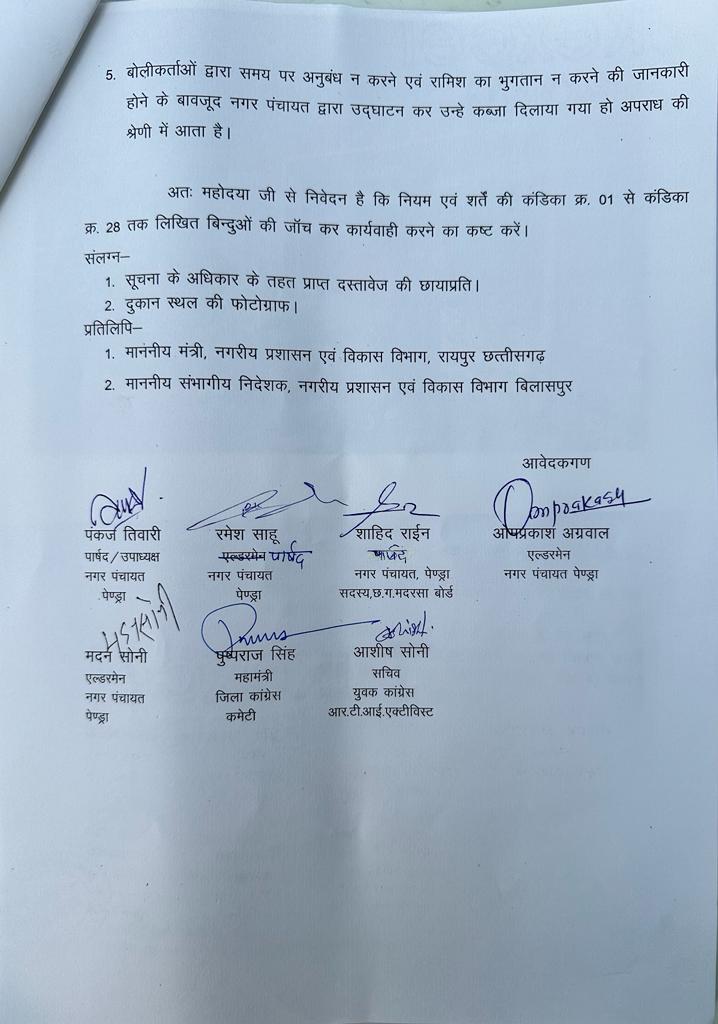 5. बोलीकर्ताओं द्वारा समय पर अनुबंध न करने एवं रामिश का भुगतान न करने की जानकारी
होने के बावजूद नगर पंचायत द्वारा उद्घाटन कर उन्हे कब्जा दिलाया गया हो अपराध की
श्रेणी में आता है।
अतः महोदया जी से निवेदन है कि नियम एवं शर्तें की कंडिका क्र. 01 से कंडिका
क्र. 28 तक लिखित बिन्दुओं की जॉच कर कार्यवाही करने का कष्ट करें।
संलग्न–
1. सूचना के अधिकार के तहत प्राप्त दस्तावेज की छायाप्रति।
2. दुकान स्थल की फोटोग्राफ।
प्रतिलिपि–
1. माननीय मंत्री, नगरीय प्रशासन एवं विकास विभाग, रायपुर छत्तीसगढ़
2. माननीय संभागीय निदेशक, नगरीय प्रशासन एवं विकास विभाग बिलासपुर
आवेदकगण
Omprakash
पंकज तिवारी रमेश साहू शाहिद राईन ओमप्रकाश अग्रवाल
पार्षद/उपाध्यक्ष एल्डरमेन पार्षद पार्षद एल्डरमेन
नगर पंचायत नगर पंचायत नगर पंचायत, पेण्ड्रा नगर पंचायत पेण्ड्रा
पेण्ड्रा पेण्ड्रा सदस्य,छ.ग.मदरसा बोर्ड
मदन सोनी
मदन सोनी पुष्पराज सिंह आशीष सोनी
एल्डरमेन महामंत्री सचिव
नगर पंचायत जिला कांग्रेस युवक कांग्रेस
पेण्ड्रा कमेटी आर.टी.आई.एक्टीविस्ट